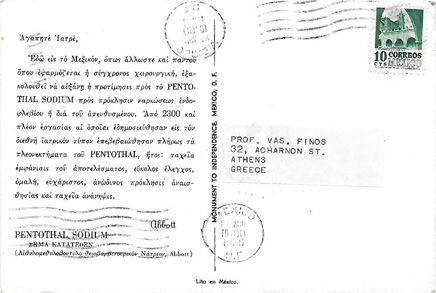 Ἀγαπητὲ Ἰατρέ,
Ἐδῶ εἰς τὸ Μεξικόν, ὅπως ἄλλωστε καὶ παντοῦ
ὅπου ἐφαρμόζεται ἡ σύγχρονος χειρουργική, ἐξα-
κολουθεῖ νὰ αὐξάνῃ ἡ προτίμησις πρὸς τὸ PENTO-
THAL SODIUM πρὸς πρόκλησιν ναρκώσεως ἐνδο-
φλεβίου ἢ διὰ τοῦ ἀπευθυσμένου. Ἀπὸ 2300 καὶ
πλέον ἐργασίας αἱ ὁποῖαι ἐδημοσιεύθησαν εἰς τὸν
διεθνῆ ἰατρικὸν τύπον ἐπεβεβαιώθησαν πλήρως τὰ
πλεονεκτήματα τοῦ PENTOTHAL, ἤτοι: ταχεῖα
ἐμφάνισις τοῦ ἀποτελέσματος, εὔκολος ἔλεγχος,
ὁμαλή, εὐχάριστος, ἀνώδυνος πρόκλησις ἀναισ-
θησίας καὶ ταχεῖα ἀνάνηψις.
Abbott
PENTOTHAL SODIUM
ΣΗΜΑ ΚΑΤΑΤΕΘΕΝ
Νάτριον, Abbott)
MONUMENT TO INDEPENDENCE, MEXICO, D. F.
10 CORREOS
CTS MEXICO
PROF. VAS. FINOS
32, ACHARNON ST.
ATHENS
GREECE
MEXICO
D.F.
Lito en México.